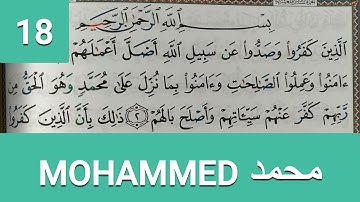 18
بِسْمِ اللَّهِ الرَّحْمَٰنِ الرَّحِيمِ
الَّذِينَ كَفَرُوا وَصَدُّوا عَن سَبِيلِ اللَّهِ أَضَلَّ أَعْمَٰلَهُمْ
ءَامَنُوا وَعَمِلُوا الصَّٰلِحَٰتِ وَءَامَنُوا بِمَا نُزِّلَ عَلَىٰ مُحَمَّدٍ وَهُوَ الْحَقُّ مِن
رَّبِّهِمْ كَفَّرَ عَنْهُمْ سَيِّـَٔاتِهِمْ وَأَصْلَحَ بَالَهُمْ ٢ ذَٰلِكَ بِأَنَّ الَّذِينَ كَفَرُوا
MOHAMMED محمد